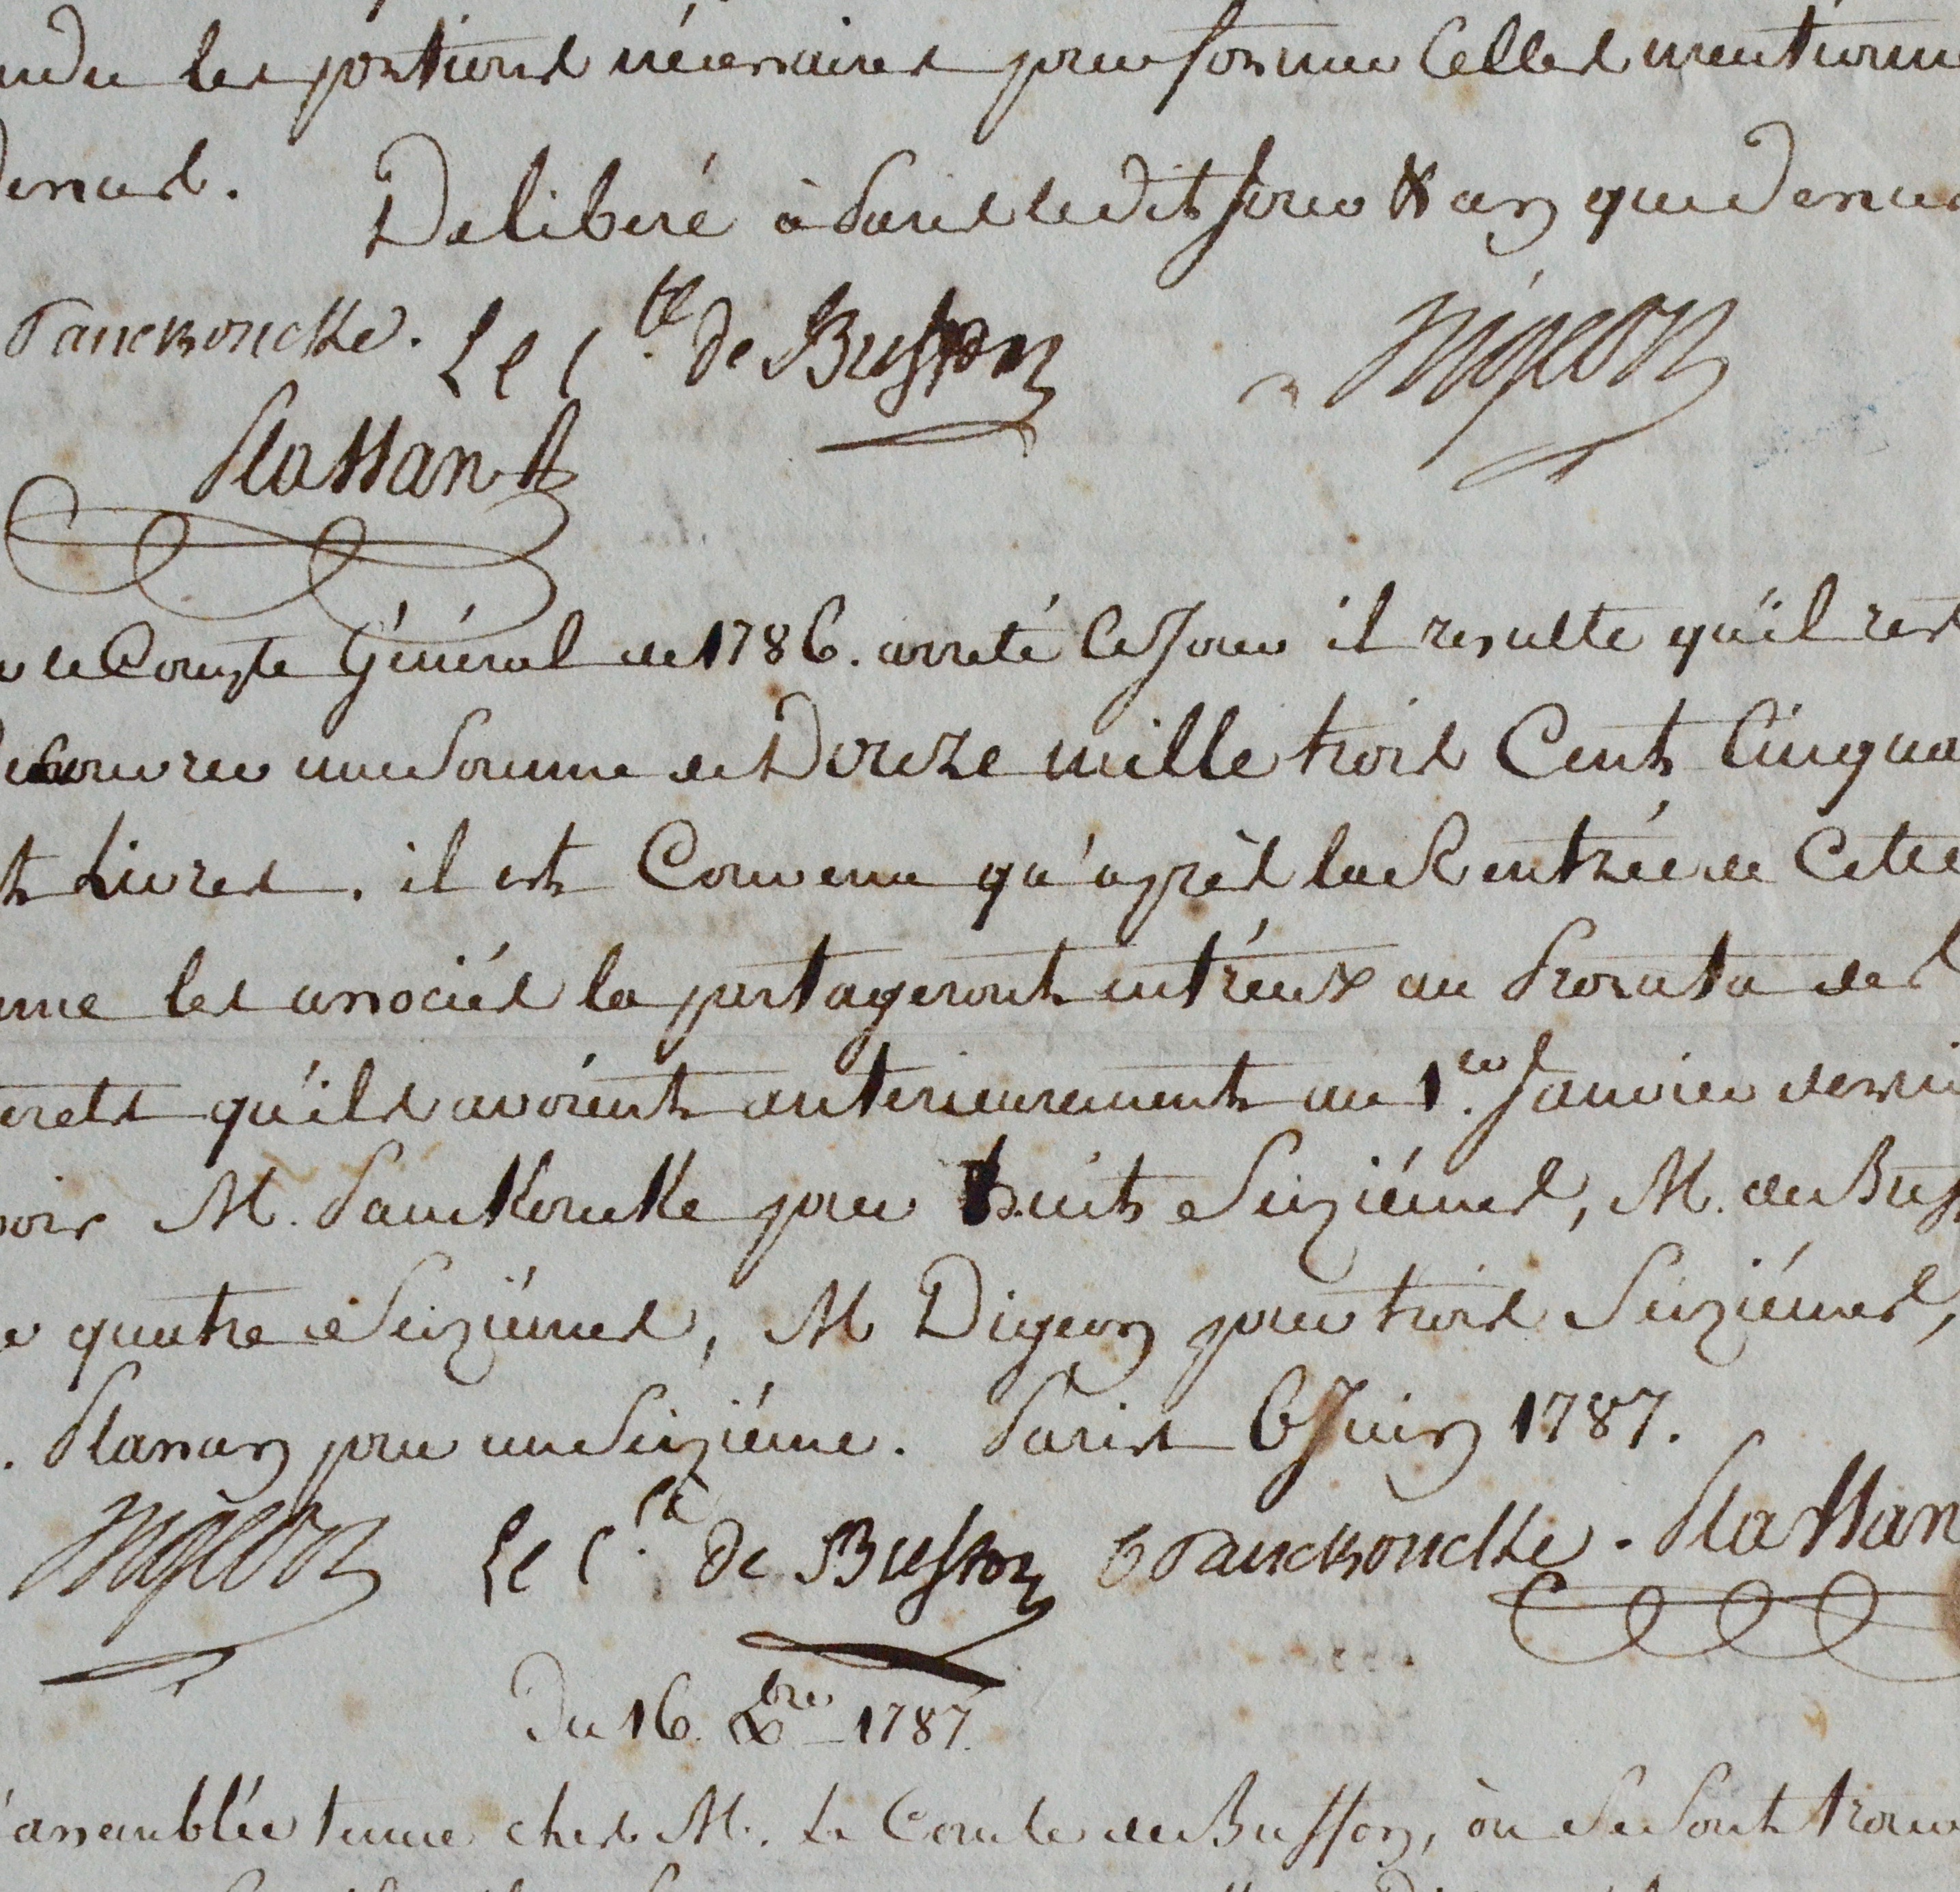 les portions nécessaires pour former Celles mentionn
dessus. Deliberé à Paris ledit Jour & an que dessus
Panckoucke. Le C.te de Buffon Digeon
Plassan
le Compte Général de 1786. arreté ce Jour il resulte qu'il rest
recouvrer une Somme de Douze mille trois Cent Cinqua
t Livres. il est Convenu qu'après la Rentrée de Cette
me les associés la partageront entr'eux au Prorata des
erets qu'ils avoient anterieurement au 1.er Janvier derni
voir M. Panckoucke pour huit Seiziémes, M. de Buff
quatre Seiziémes, M Digeon pour trois Seiziémes,
. Plassan pour un Seiziéme. Paris 6 Juin 1787.
Digeon Le C.te de Buffon C Panckoucke. Plassan
Du 16. Xbre 1787.
assemblée tenue chez M. Le Comte de Buffon, où se sont trouv